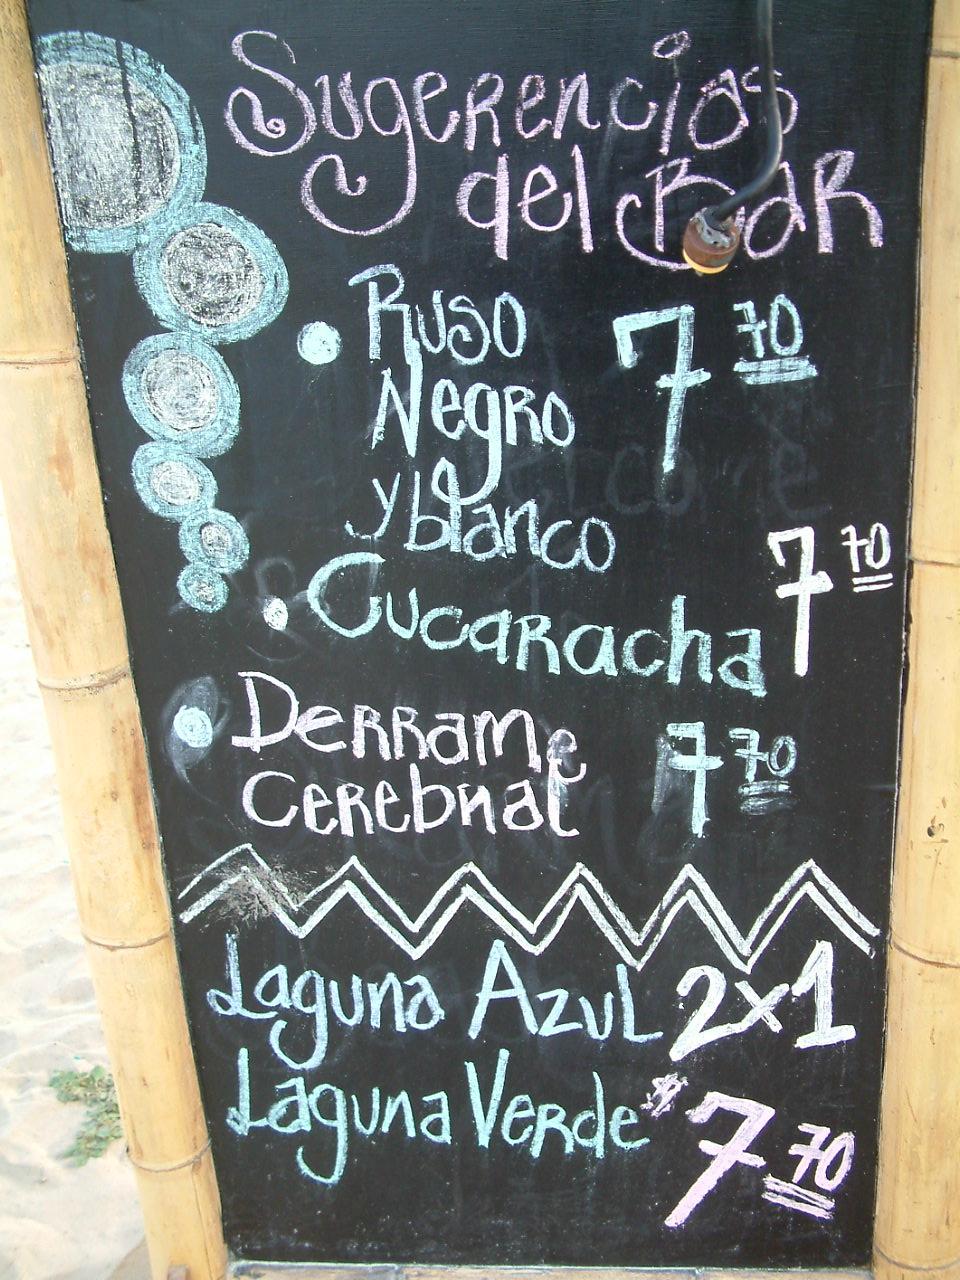 Sugerencias
del Bar
Ruso 7 70
Negro
y blanco
Cucaracha 7 70
Derrame 7 70
Cerebral
Laguna Azul 2x1
Laguna Verde $7 70